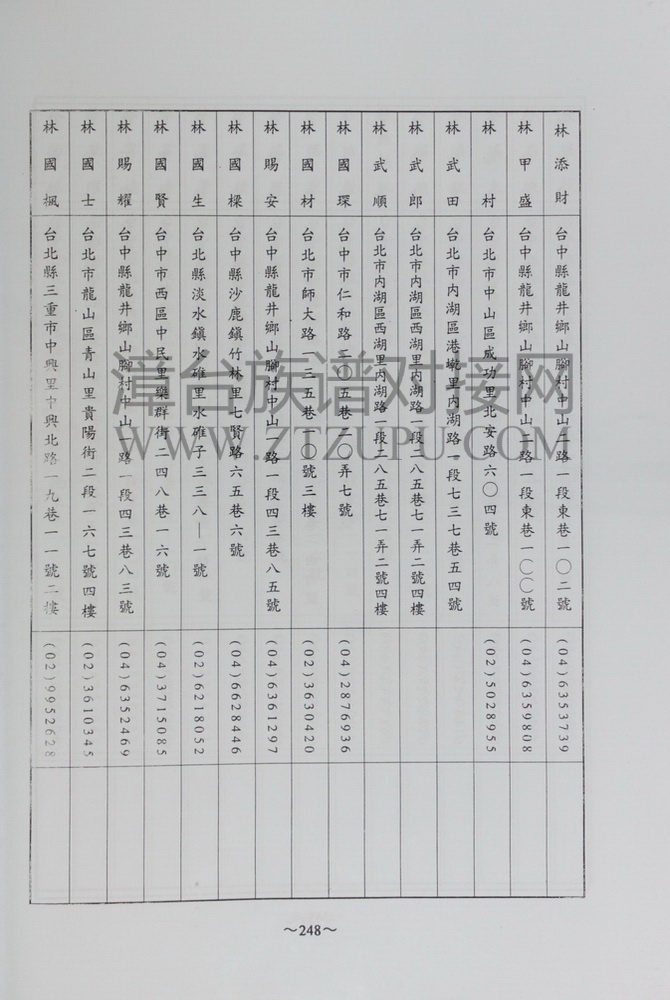 林添財 台中縣龍井鄉山腳村中山二路一段東巷一〇二號 (04)6353739
林甲盛 台中縣龍井鄉山腳村中山二路一段東巷一〇〇號 (04)6359808
林村 台北市中山區成功里北安路六〇四號 (02)5028955
林武田 台北市內湖區港墘里內湖路一段七三七巷五四號
林武郎 台北市內湖區西湖里內湖路一段二八五巷七一弄二號四樓
林武順 台北市內湖區西湖里內湖路一段二八五巷七一弄二號四樓
林國琛 台中市仁和路二〇五巷二〇弄七號 (04)2876936
林國材 台北市師大路一三五巷一〇號三樓 (02)3630420
林賜安 台中縣龍井鄉山腳村中山一路一段四三巷八五號 (04)6361297
林國樑 台中縣沙鹿鎮竹林里七賢路六五巷六號 (04)6628446
林國生 台北縣淡水鎮水碓里水碓子三三八—一號 (02)6218052
林國賢 台中市西區中民里樂群街二四八巷一六號 (04)3715085
林賜耀 台中縣龍井鄉山腳村中山一路一段四三巷八三號 (04)6352469
林國士 台北市龍山區青山里貴陽街二段一六七號四樓 (02)3610345
林國楓 台北縣三重市中興里中興北路一九巷一一號二樓 (02)9952628
漳台族谱对接网
WWW.ZTZUPU.COM
～248～